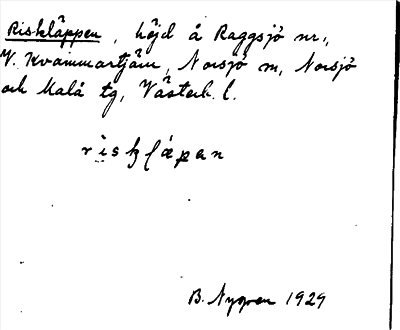 Riskläppen, höjd å Raggsjö nr.,
V. Kvammartjärn, Norsjö sn, Norsjö
och Malå tg, Västerb. l.
riskläpan
B. Nygren 1929